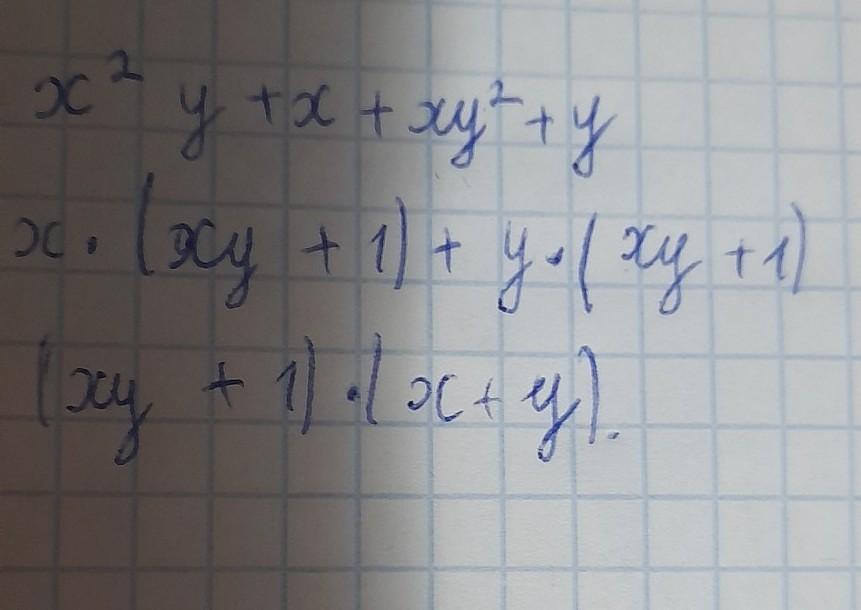 x² y + x + xy² + y
x · (xy + 1) + y · (xy + 1)
(xy + 1) · (x + y).